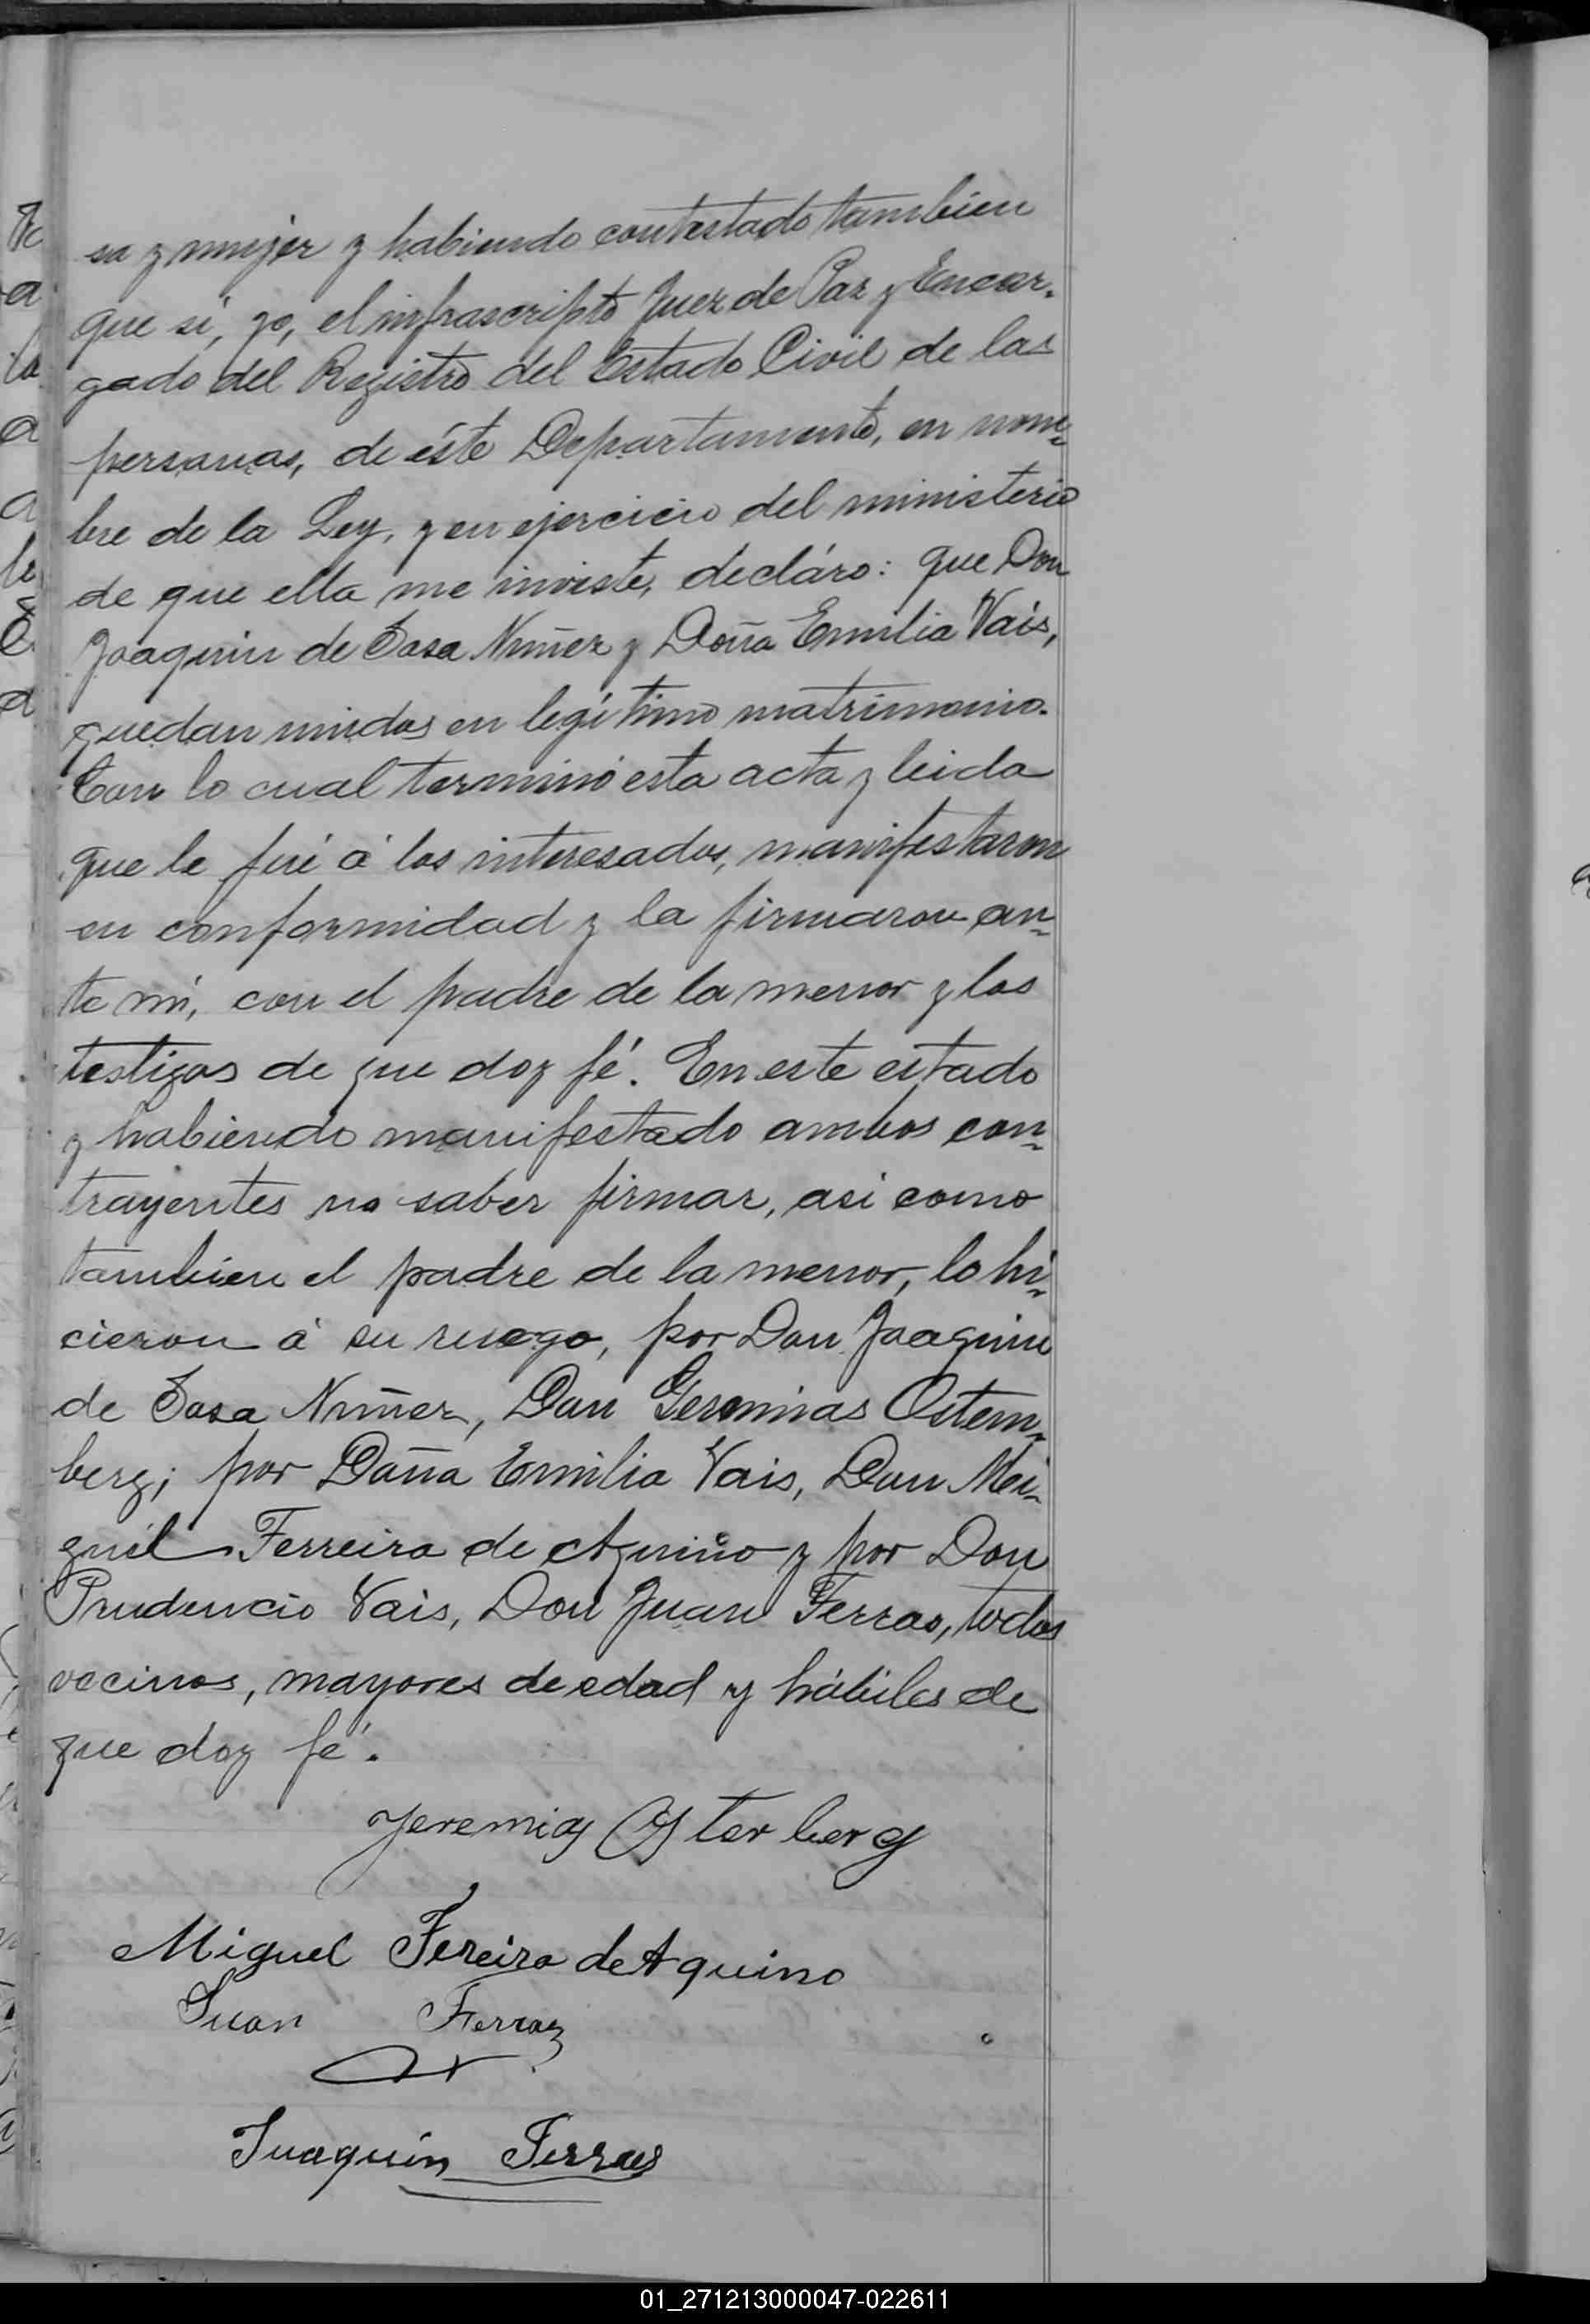 sa y mujer y habiendo contestado tambien
que si, yo, el infrascripto Juez de Paz y Encar-
gado del Registro del Estado Civil de las
personas, de éste Departamento, en nom-
bre de la Ley, y en ejercicio del ministerio
de que ella me inviste, decláro: que Don
Joaquin de Sosa Nuñez y Doña Emilia Vais,
quedan unidos en legítimo matrimonio.
Con lo cual terminó esta acta y leida
que le fué á los interesados, manifestaron
su conformidad y la firmaron an-
te mí, con el padre de la menor y los
testigos de que doy fé. En este estado
y habiendo manifestado ambos con-
trayentes no saber firmar, asi como
tambien el padre de la menor, lo hi-
cieron á su ruego, por Don Joaquin
de Sosa Nuñez, Don Geremias Ostem-
berg; por Doña Emilia Vais, Don Mi-
guel Ferreira de Aquino y por Don
Prudencio Vais, Don Juan Ferras, todos
vecinos, mayores de edad y hábiles de
que doy fé.
Jeremias Osterberg
Miguel Fereira de Aquino
Juan Ferraz
Juaquin Ferraes
01_271213000047-022611